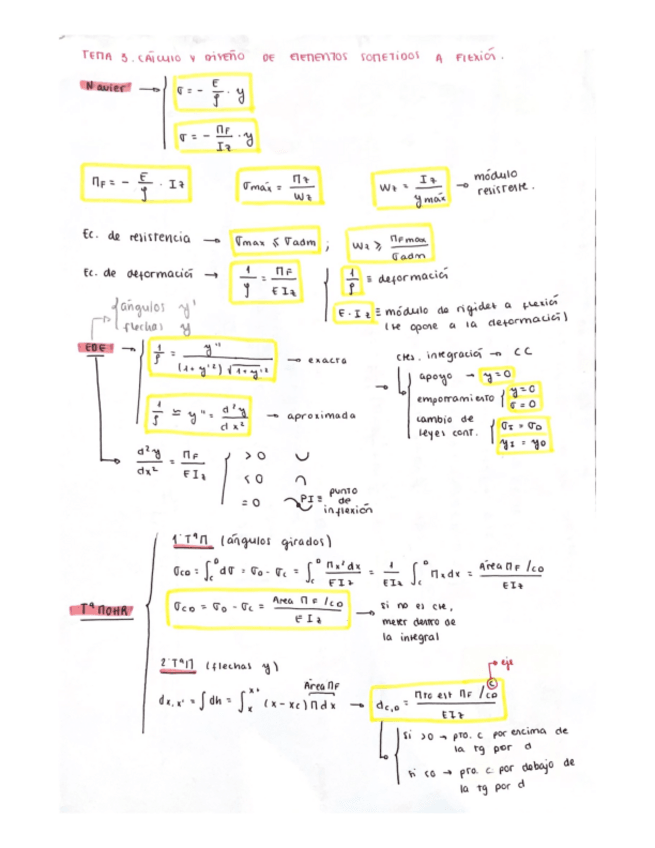 TEMA 5. CÁLCULO Y DISEÑO DE ELEMENTOS SOMETIDOS A FLEXIÓN.
Navier → σ = - E/ρ · y
σ = - MF/Iz · y
MF = - E/ρ · Iz
σmáx = Mz/Wz
Wz = Iz/ymáx → módulo resistente.
Ec. de resistencia → σmax ≤ σadm ; Wz ≥ MFmax/σadm
Ec. de deformación → 1/ρ = MF/EIz
1/ρ ≡ deformación
E·Iz ≡ módulo de rigidez a flexión
(se opone a la deformación)
ángulos y'
flechas y
EDE → 1/ρ = y''/(1+y'²)√1+y'² → exacta
1/ρ ≅ y'' = d²y/dx² → aproximada
→ ctes. integración → CC
apoyo → y=0
empotramiento y=0
σ=0
cambio de leyes cont. σI = σD
yI = yD
d²y/dx² = MF/EIz
>0 ∪
<0 ∩
=0 PI ≡ punto de inflexión
1º TªM (ángulos girados)
σCD = ∫c^D dσ = σD - σC = ∫c^D Mx' dx/EIz = 1/EIz ∫c^D Mx dx = Área MF /CD/EIz
TªMOHR
σCD = σD - σC = Area MF /CD/EIz → si no es cte,
meter dentro de
la integral
2º TªM (flechas y)
→ eje
Área MF
dx,x' = ∫dh = ∫x^x' (x - xc) M dx → dC,D = Mto est MF /CD/EIz
C
si >0 → pto. c por encima de
la tg por d
si <0 → pto. c por debajo de
la tg por d